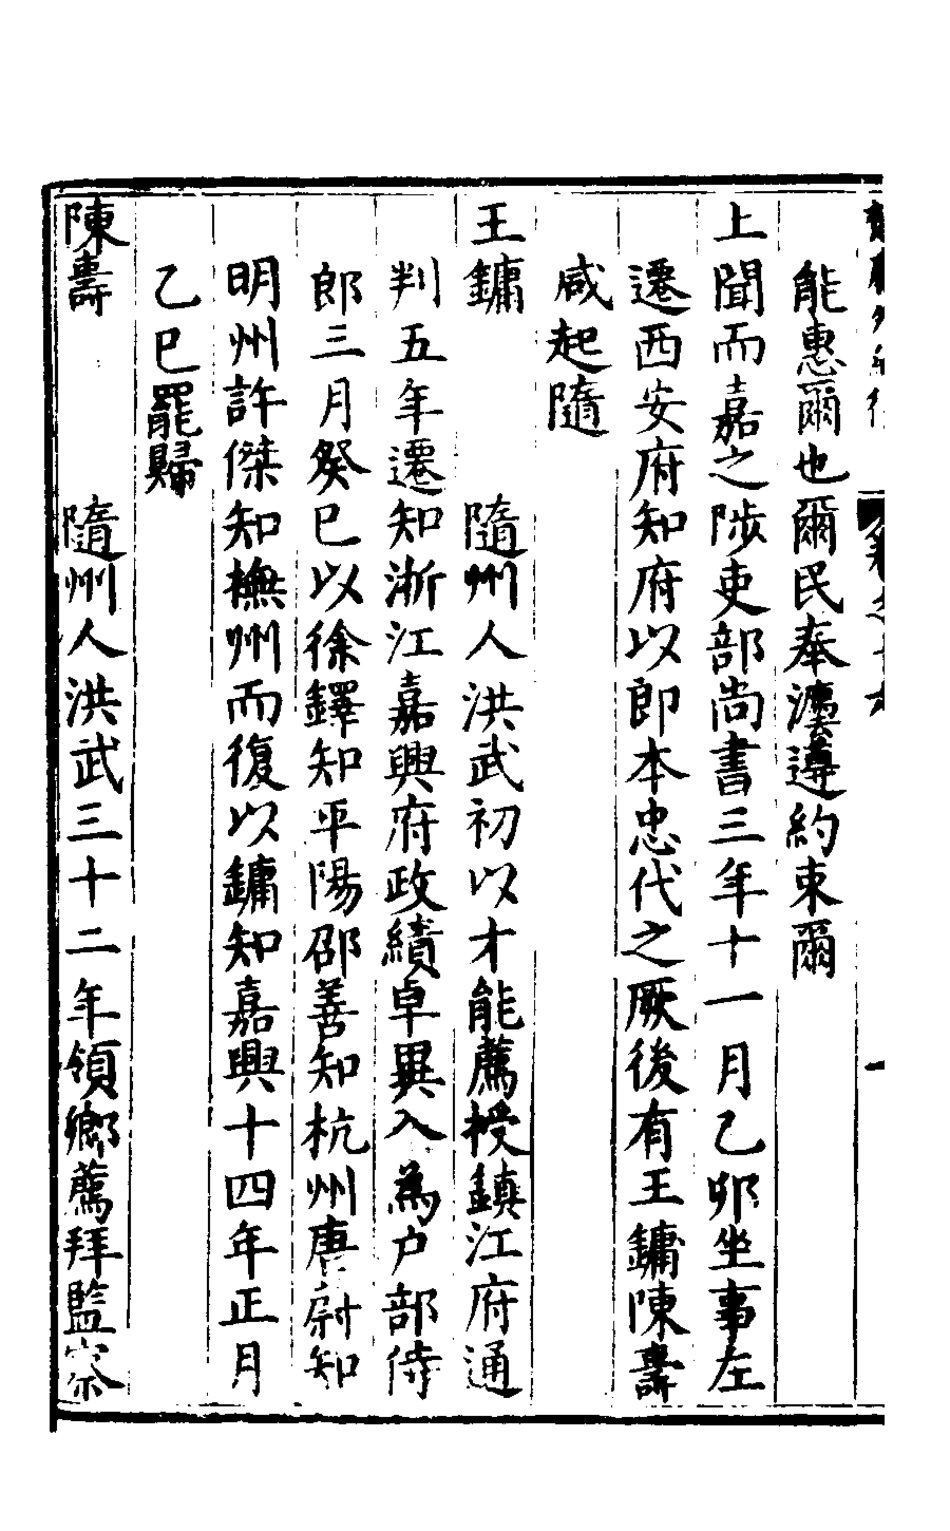 能惠爾也爾民奉灋遵約束爾
上聞而嘉之陟吏部尚書三年十一月乙卯坐事左
遷西安府知府以郎本忠代之厥後有王鏞陳壽
咸起隨
王鏞　隨州人洪武初以才能薦授鎮江府通
判五年遷知浙江嘉興府政績卓異入為户部侍
郎三月癸巳以徐鐸知平陽邵善知杭州唐尉知
明州許傑知橅州而復以鏞知嘉興十四年正月
乙巳罷歸
陳壽　隨州人洪武三十二年領鄉薦拜監察